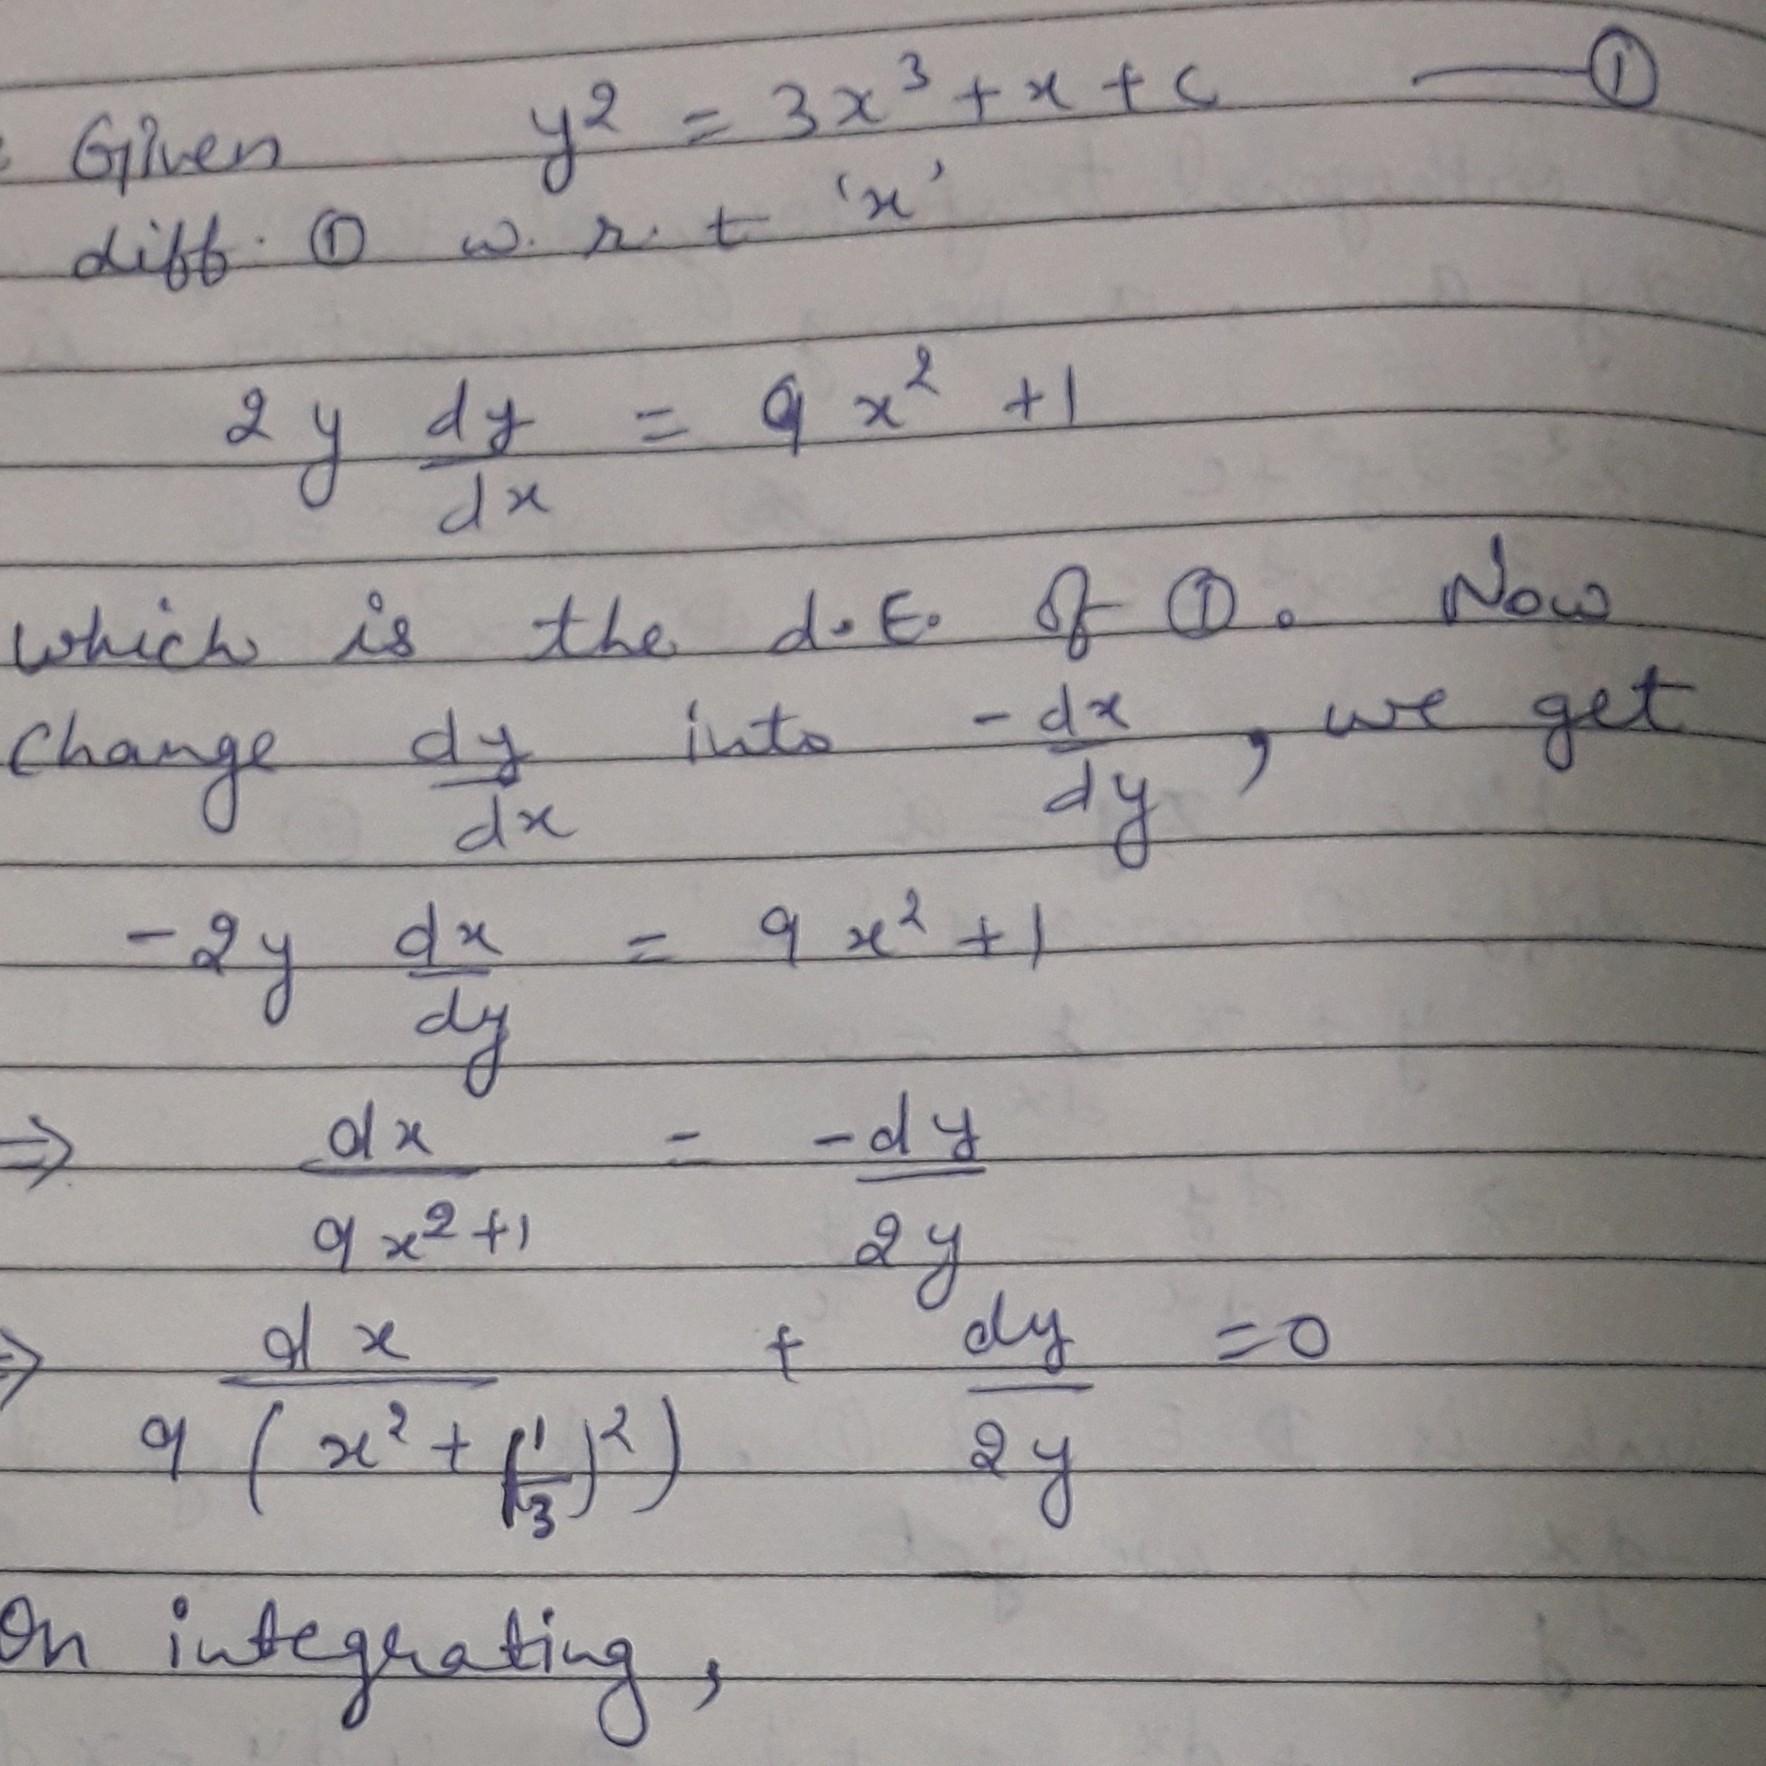 Given y² = 3x³ + x + c —— ①
diff. ① w. r. t 'x'
2y dy/dx = 9x² + 1
which is the d.E. of ①. Now
Change dy/dx into -dx/dy, we get
-2y dx/dy = 9x² + 1
⇒ dx/(9x²+1) = -dy/2y
⇒ dx/(9(x² + (1/3)²)) + dy/2y = 0
On integrating,